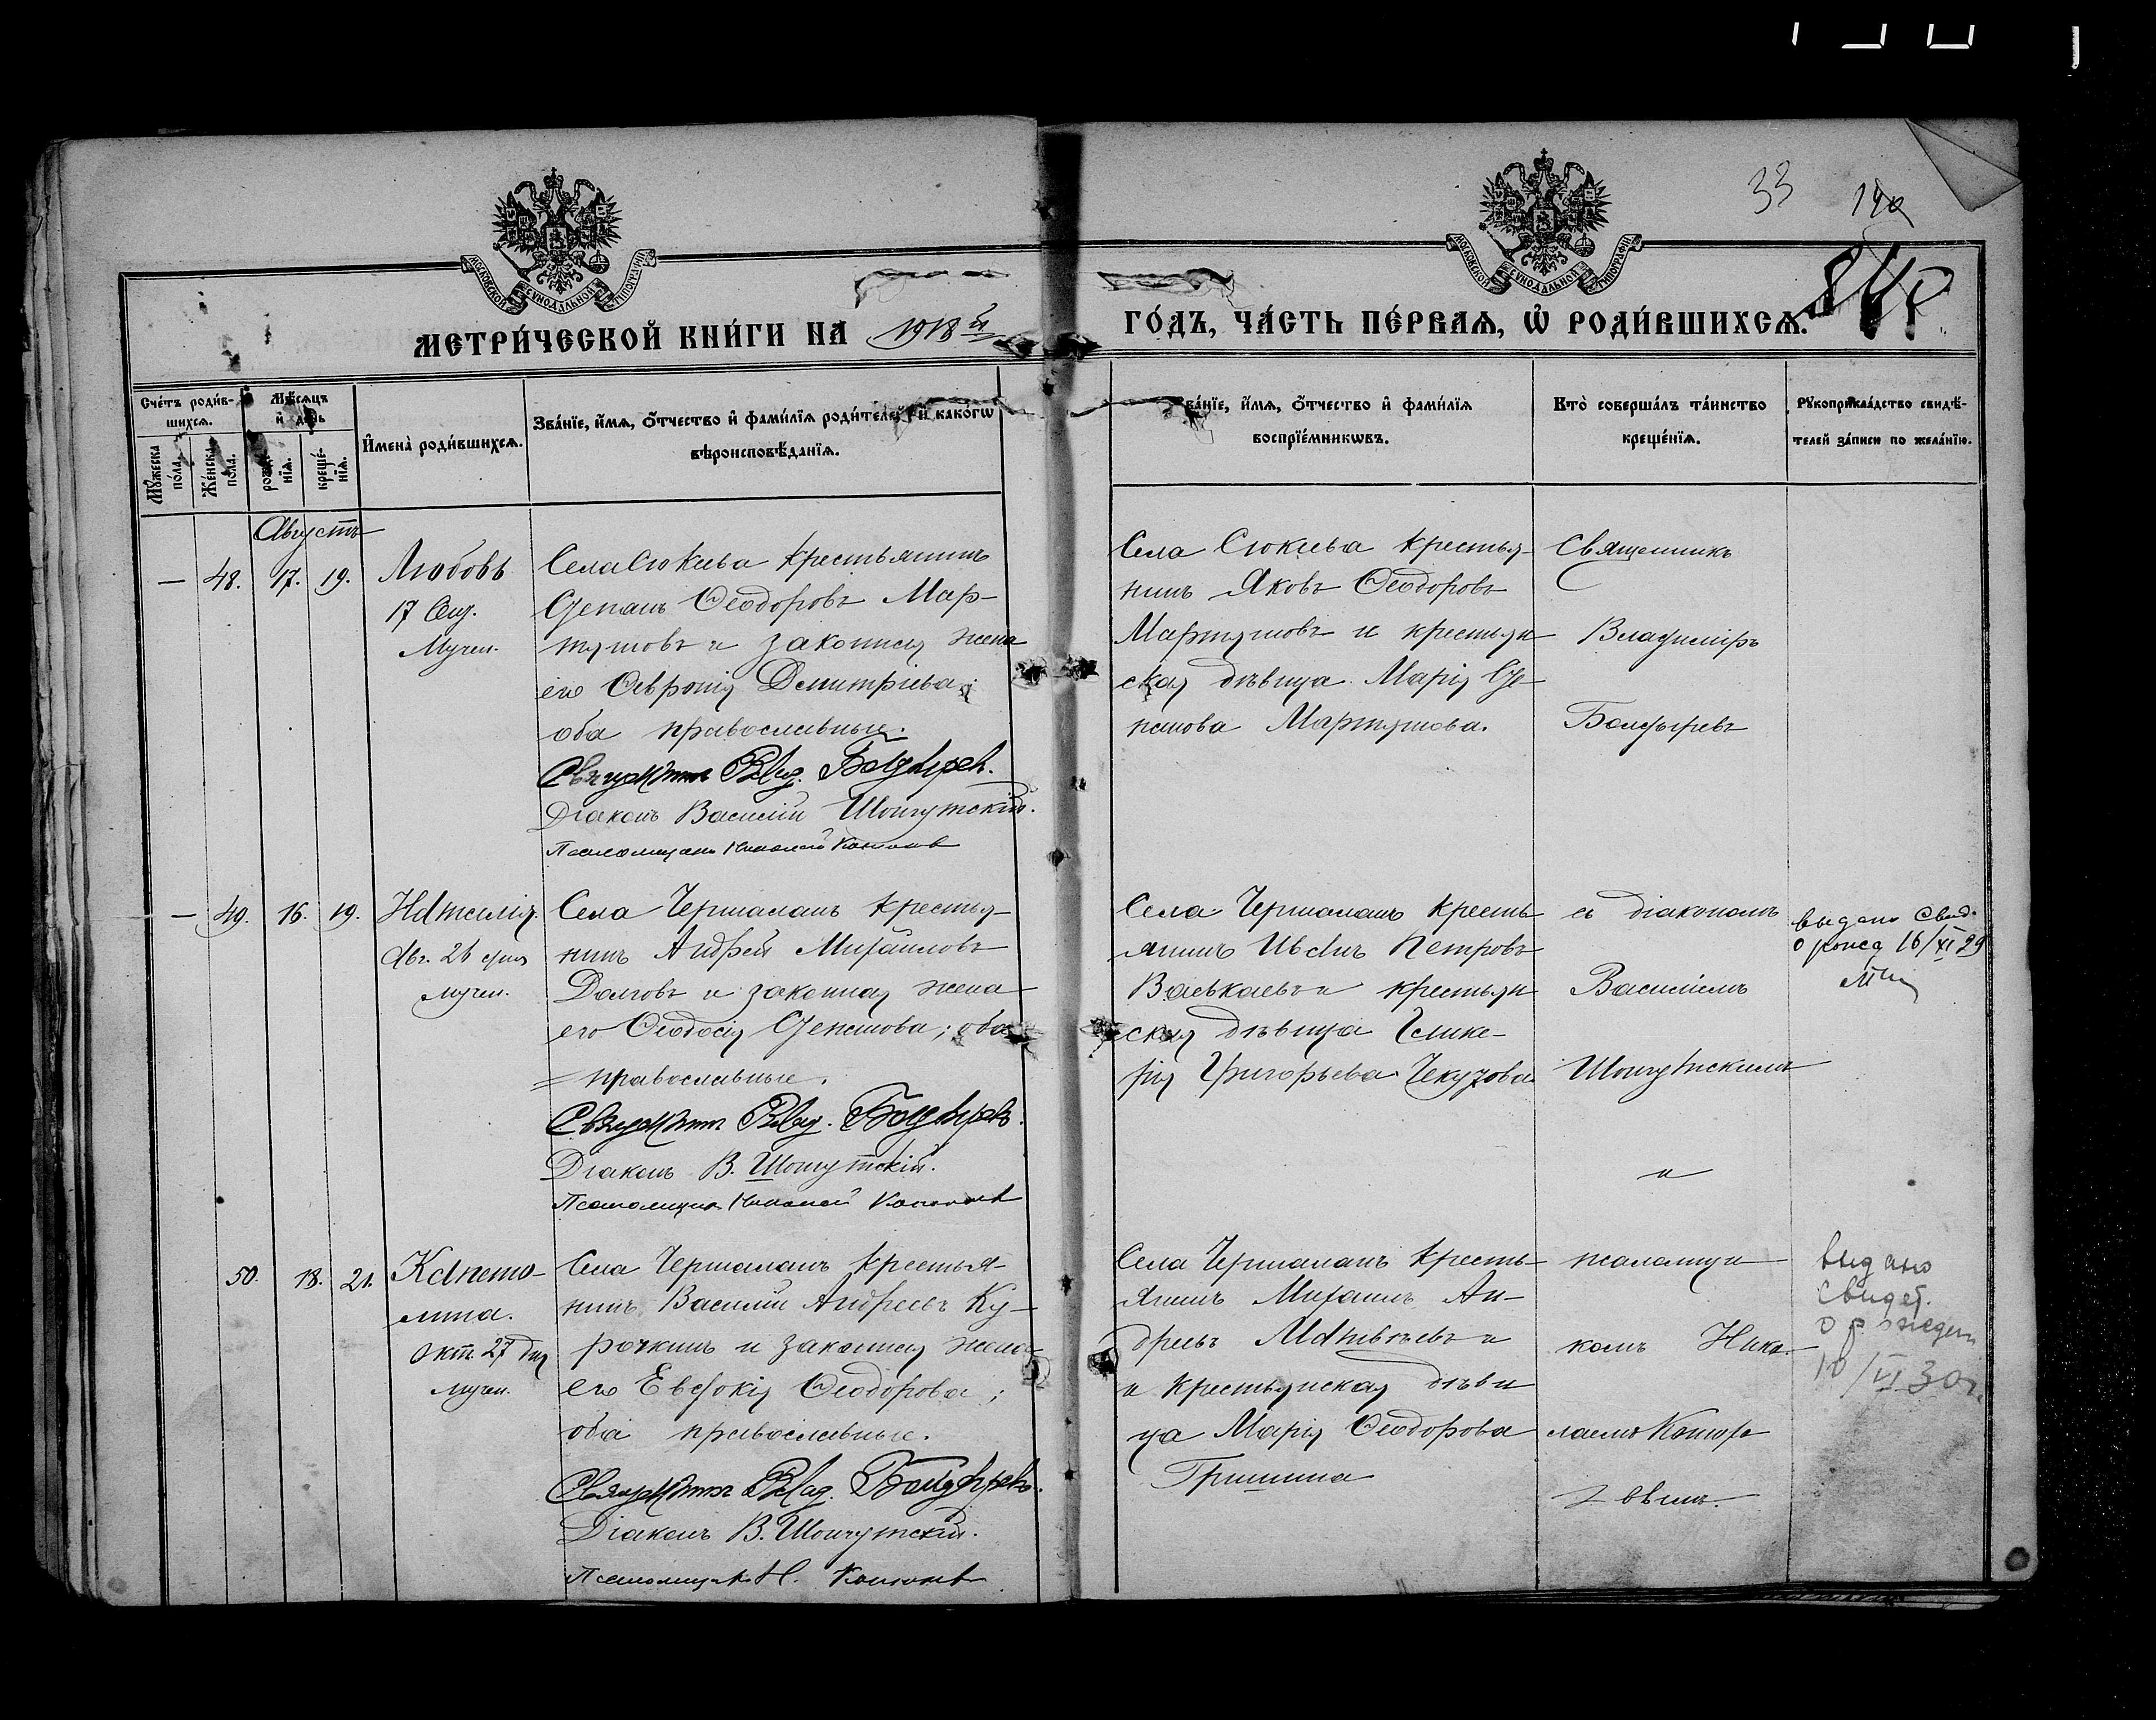 33 140
МОСКОВСКОЙ СѴНОДАЛЬНОЙ ТИПОГРАФІИ
МОСКОВСКОЙ СѴНОДАЛЬНОЙ ТИПОГРАФІИ
МЕТРИ́ЧЕСКОЙ КНИ́ГИ НА 1918 й
ГО́ДЪ, ЧА́СТЬ ПЕ́РВАѦ, Ѡ҆ РОДИ́ВШИХСѦ.
Сче́тъ роди́в-
шихсѧ.
Мꙋ́жеска
по́ла.
Же́нска
по́ла.
Мѣ́сѧцъ
и҆ де́нь
рожде́-
нїѧ.
креще́-
нїѧ.
И҆мена̀ роди́вшихсѧ.
Зва́нїе, и҆́мѧ, ѻ҆́тчество и҆ фами́лїѧ роди́телей, и҆ како́гѡ
вѣроисповѣ́данїѧ.
Зва́нїе, и҆́мѧ, ѻ҆́тчество и҆ фами́лїѧ
воспрїе́мникѡвъ.
Кто̀ соверша́лъ та́инство
креще́нїѧ.
Рꙋкоприкла́дство свидѣ́-
телей за́писи по жела́нїю.
Августъ
— 48. 17. 19. Любовь
17 Сен.
Мучен.
Села Сюкеева крестьянинъ
Степанъ Ѳеодоровъ Мар-
тушовъ и законная жена
его Феврония Димитріева;
оба православные.
Священникъ Влад. Болдыревъ.
Діаконъ Василій Шонгутскій.
Псаломщикъ Николай
Села Сюкеева крестья-
нинъ Яковъ Ѳеодоровъ
Мартушовъ и крестьян
ская дѣвица Марія Сте-
панова Мартушова.
Священникъ
Владиміръ
Болдыревъ
— 49. 16. 19. Наталія.
Авг. 26 дня
мучен.
Села Чермаланъ крестья-
нинъ Андрей Михайловъ
Долговъ и законная жена
его Ѳеодосія Степанова; оба
= православные.
Священникъ Влад. Болдыревъ.
Діаконъ В. Шонгутскій.
Псаломщикъ Николай
Села Чермаланъ кресть
янинъ Иванъ Петровъ
и крестьян
ская дѣвица Глике-
рія Григорьева
съ діакономъ
Василіемъ
Шонгутскимъ
и
выдано свид.
о рожд 16/XI 29
50. 18. 21. Капето-
лина.
Окт. 27 дня
мучен.
Села Чермаланъ крестья-
нинъ Василій Андреевъ Ку-
рочкинъ и законная жена
его Евдокія Ѳеодорова;
оба православные.
Священникъ Влад. Болдыревъ.
Діаконъ В. Шонгутскій.
Псаломщикъ Н.
Села Чермаланъ кресть-
янинъ Михаилъ Ан-
дреевъ Матвѣевъ и
и крестьянская дѣви
ца Марія Ѳеодорова
Гришина
псаломщи
комъ Нико-
лаемъ
выдано
свидет.
о рожден
10/VI 30 г.